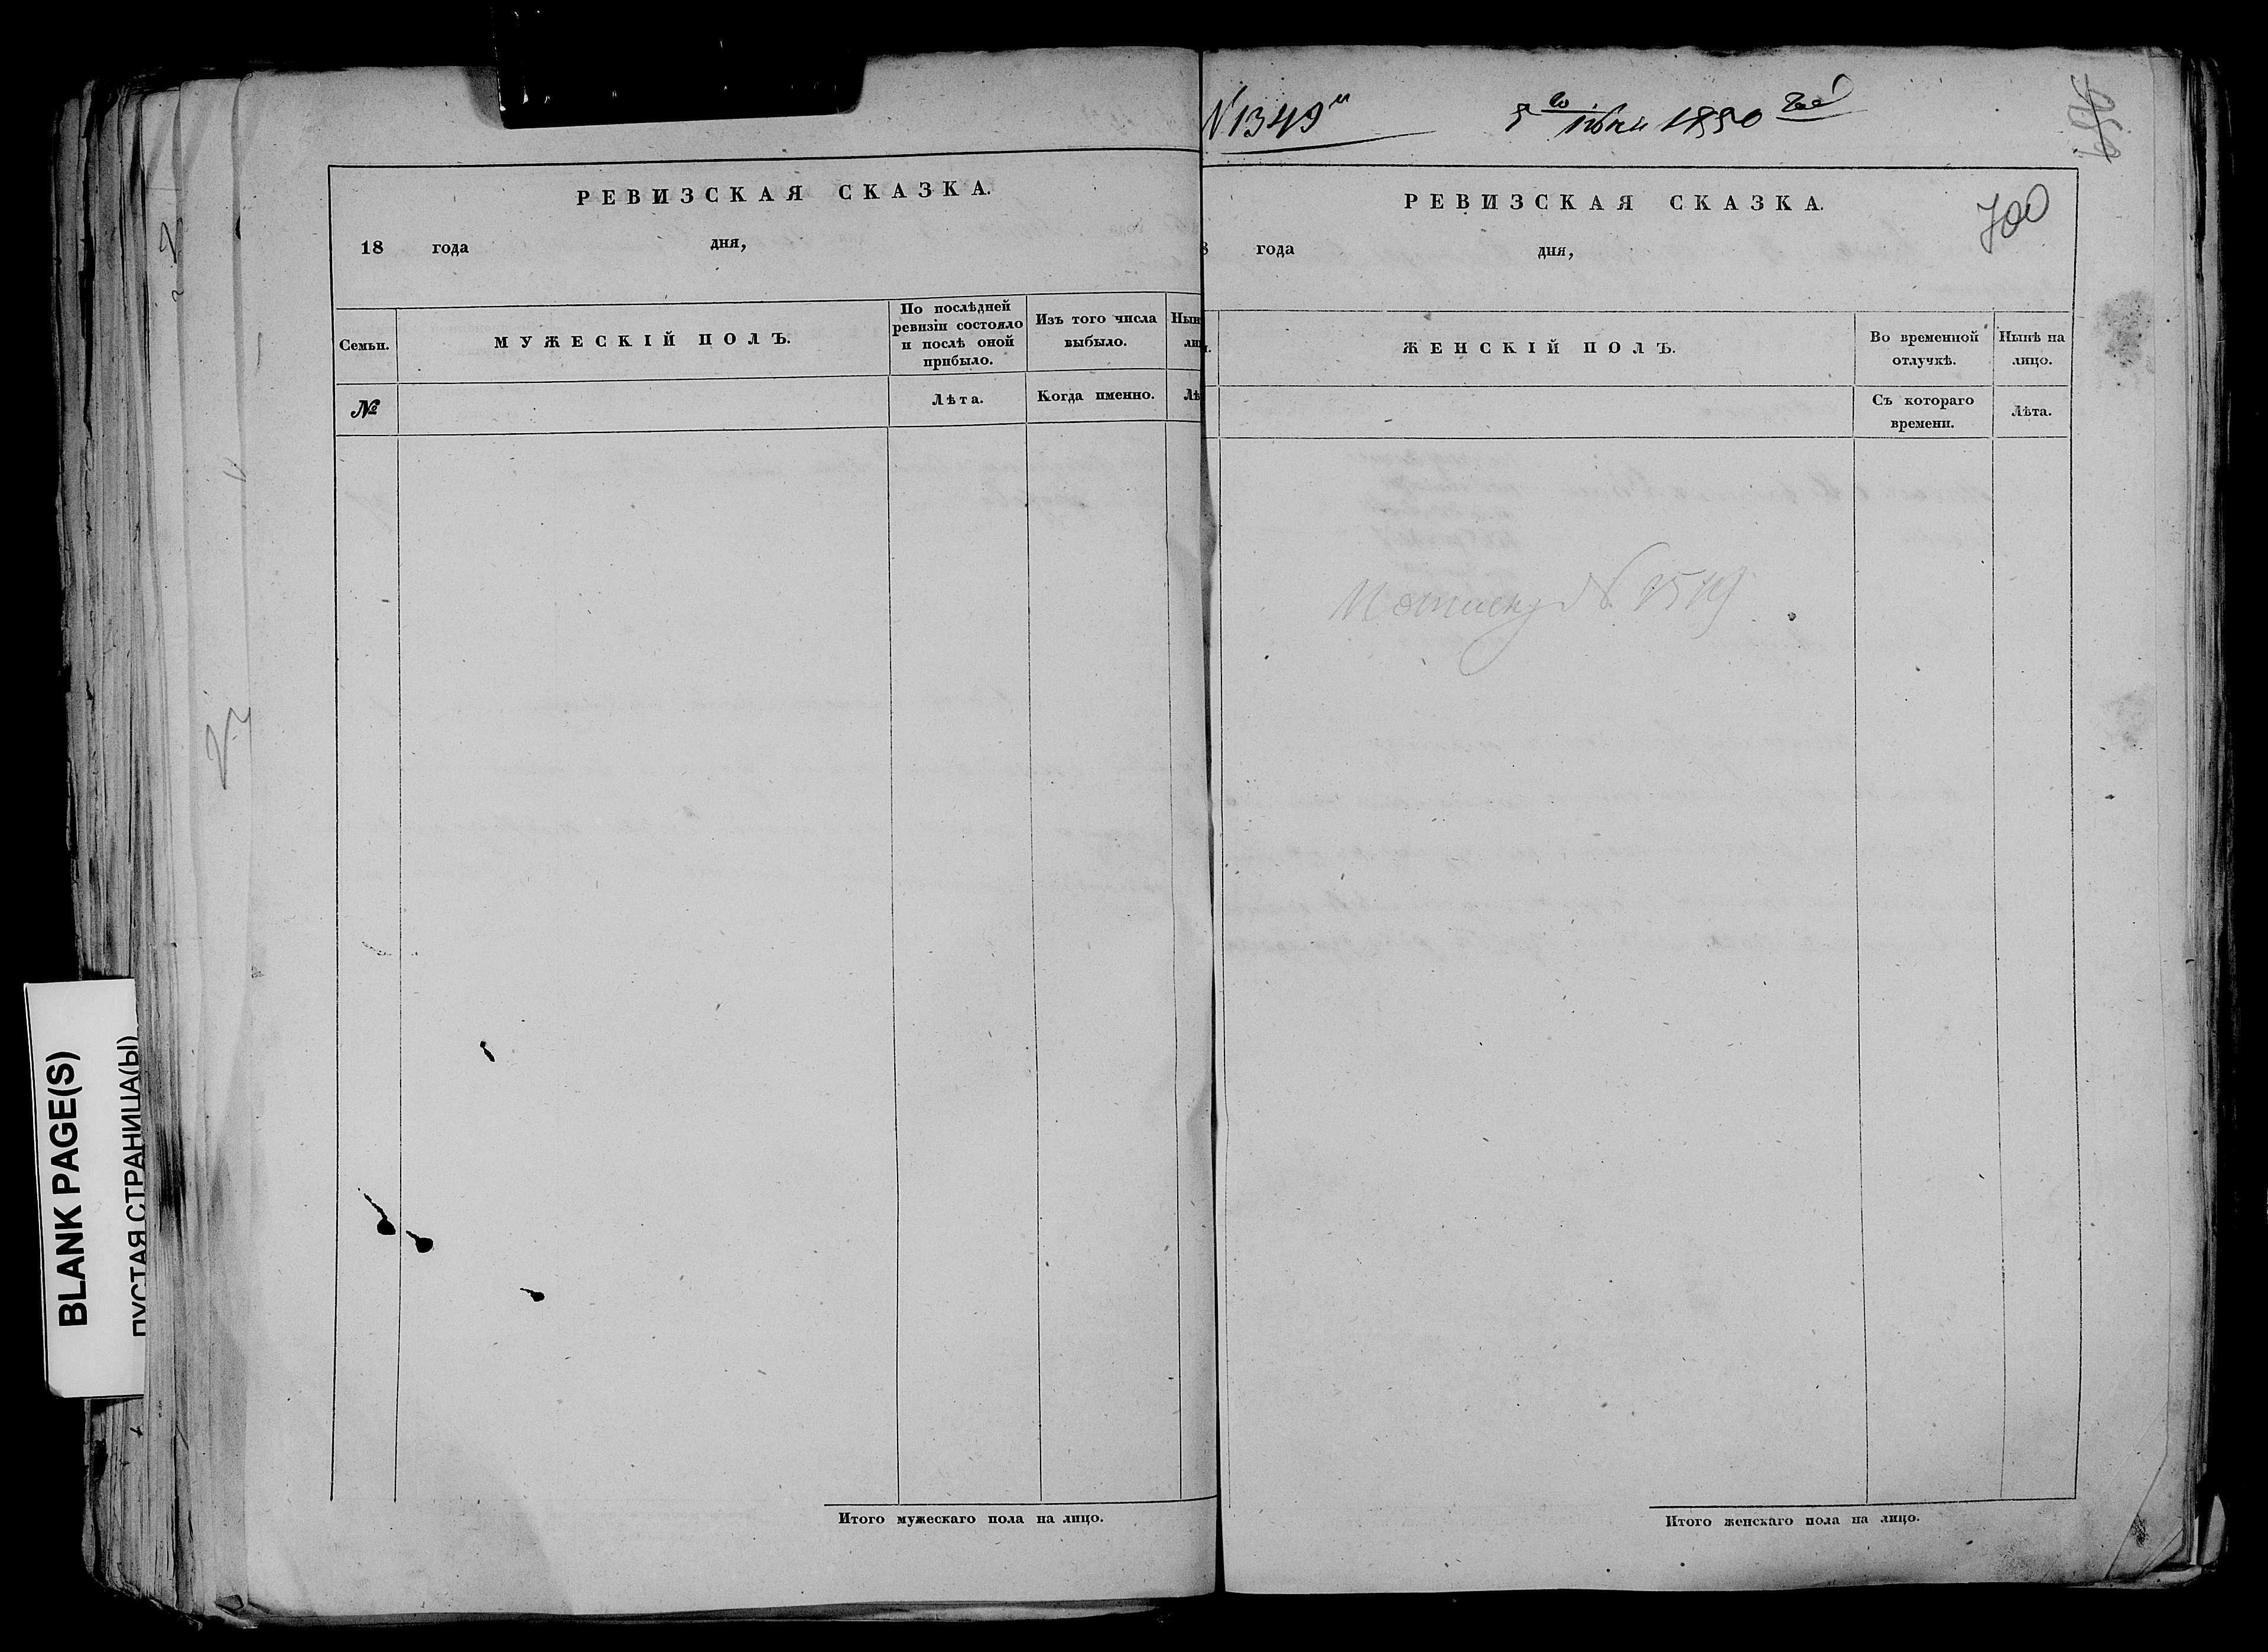 РЕВИЗСКАЯ СКАЗКА.
18 года дня,
Семьи. МУЖЕСКІЙ ПОЛЪ. По послѣдней ревизіи состояло и послѣ оной прибыло. Изъ того числа выбыло.
№ Лѣта. Когда именно.
Итого мужескаго пола на лицо.
BLANK PAGE(S)
ПУСТАЯ СТРАНИЦА(Ы)
№1349й 5го 1850 года
700
РЕВИЗСКАЯ СКАЗКА.
года дня,
ЖЕНСКІЙ ПОЛЪ. Во временной отлучкѣ. Нынѣ на лицо.
Съ котораго времени. Лѣта.
Итого женскаго пола на лицо.